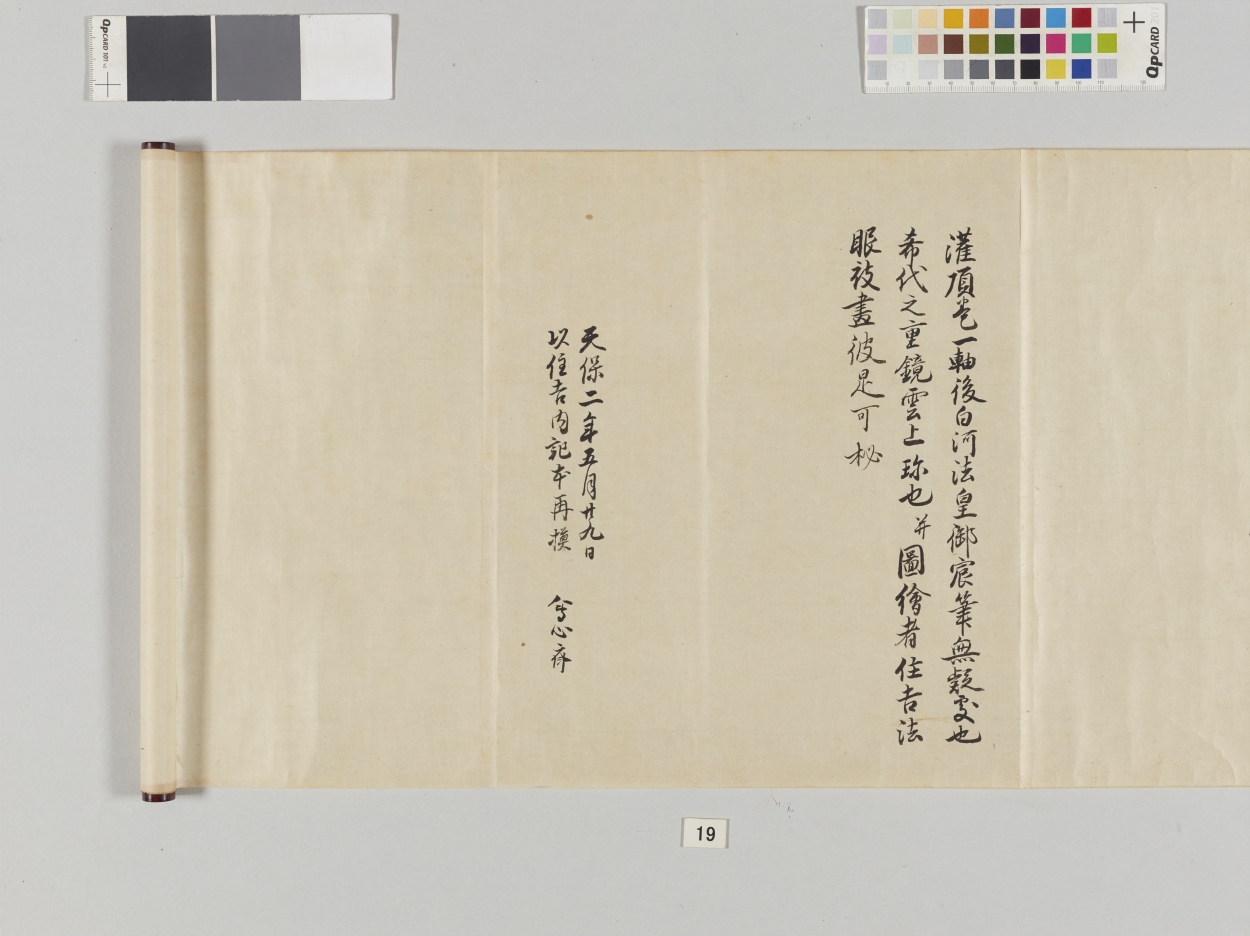 灌頂巻一軸後白河法皇御宸筆無疑処也
希代之重鏡雲上珎也并圖繪者住吉法
眼被畫彼是可秘
天保二年五月廿九日
以住吉内記本再模 會心斎
19
QPCARD 101
QPCARD 201